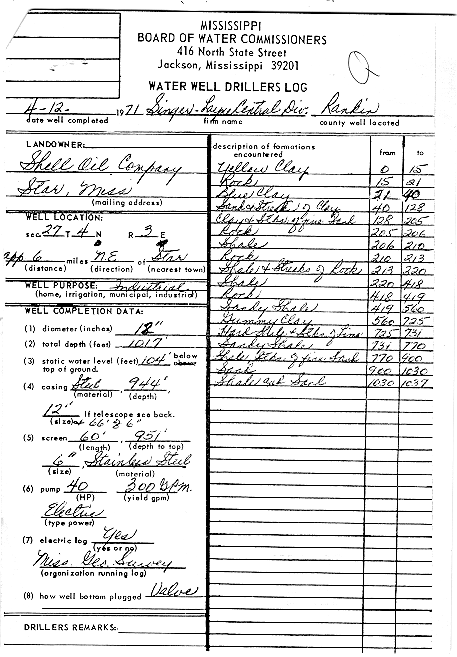 MISSISSIPPI
BOARD OF WATER COMMISSIONERS
416 North State Street
Jackson, Mississippi 39201
WATER WELL DRILLERS LOG
4-12- 1971 Singer-Layne Central Div. Rankin
date well completed firm name county well located
LANDOWNER:
Shell Oil Company
Star, Miss
(mailing address)
WELL LOCATION:
sec 27 T 4 N R 3 E
app 6 miles N.E. of Star
(distance) (direction) (nearest town)
WELL PURPOSE: Industrial
(home, irrigation, municipal, industrial)
WELL COMPLETION DATA:
(1) diameter (inches) 12"
(2) total depth (feet) 1017'
(3) static water level (feet) 104' below above
top of ground.
(4) casing Steel, 944'
(material) (depth)
12" If telescope see back.
(size) of 66' of 6"
(5) screen 60', 951'
(length) (depth to top)
6", Stainless Steel
(size) (material)
(6) pump 40 300 G.P.M.
(HP) (yield gpm)
Electric
(type power)
(7) electric log Yes
(yes or no)
Miss. Geo. Survey
(organization running log)
(8) how well bottom plugged Valve
DRILLERS REMARKS:
description of formations encountered from to
Yellow Clay 0 15
Rock 15 21
Blue Clay 21 40
Sand & Streaks of Clay 40 128
Clay & Stks. of fine Sand 128 205
Rock 205 206
Shale 206 210
Rock 210 213
Shale & Streaks of Rock 213 220
Shale 220 418
Rock 418 419
Sandy Shale 419 560
Gummy Clay 560 725
Hard Shale & Stks. of Lime 725 731
Sandy Shale 731 770
Shale Stks. of fine Sand 770 900
Sand 900 1030
Shale and Sand 1030 1037